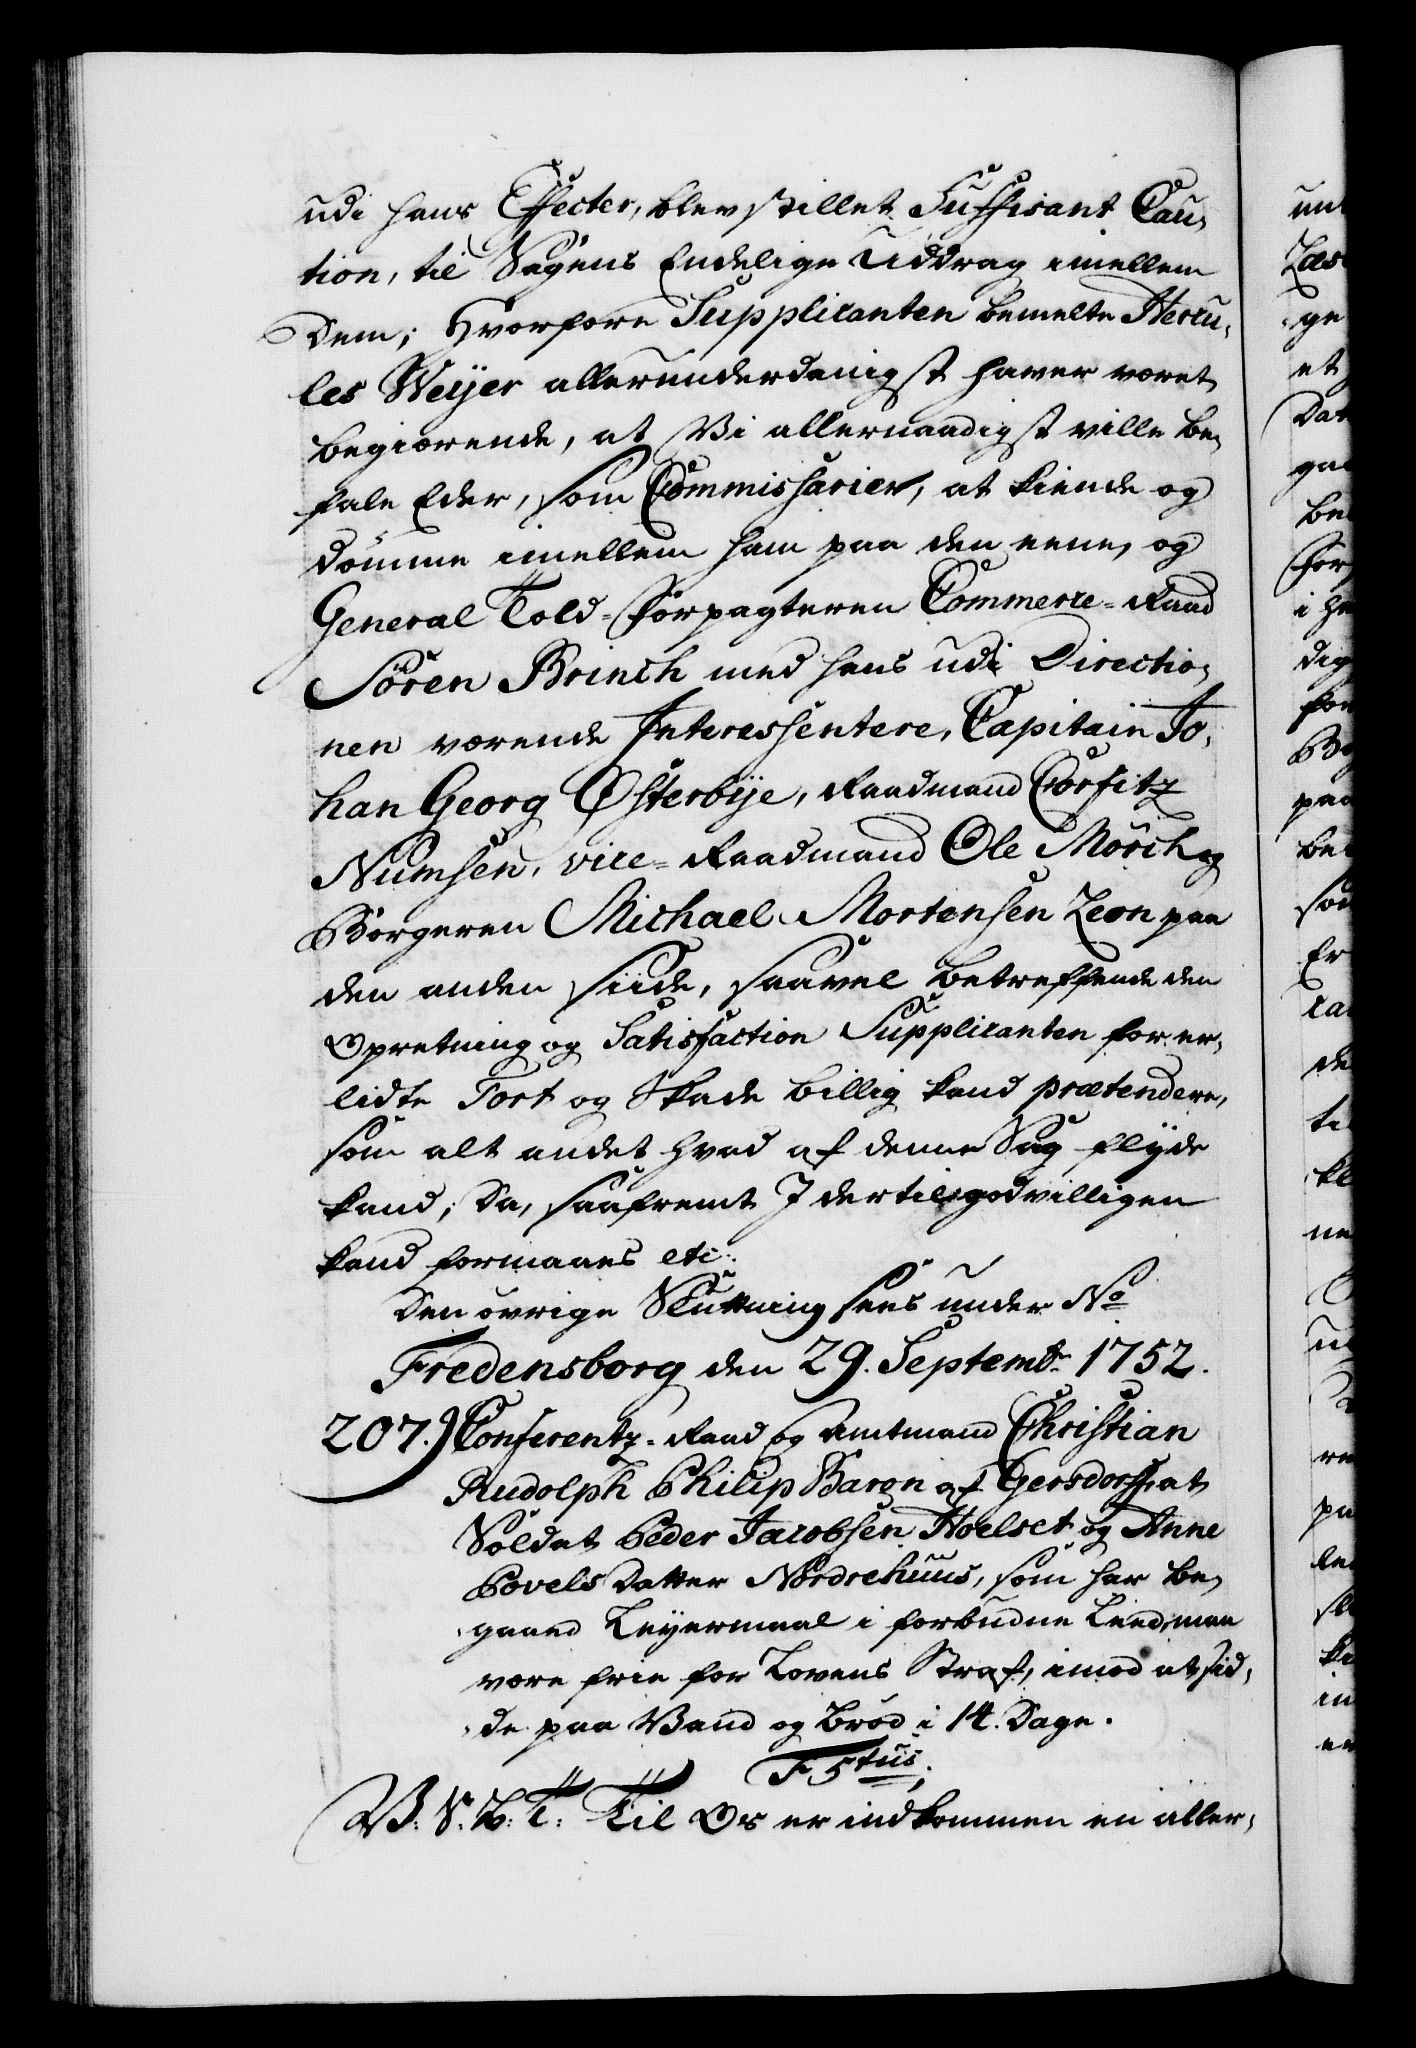 udi hans Effecter, blev stillet Suffisant Cau,
tion, til Sagens Endelige Uddrag imellem
dem; Hvorfore Supplicanten bemelte Hercu,
les Weyer allerunderdanigst haver været
begiærende, at Vi allernaadigst ville be,
fale Eder, som Commissarier, at kiende og
dömme imellem ham paa den eene, og
General Told-Forpagteren Commerce-Raad
Sören Brinch med hans udi Directio,
nen værende Interessentere, Capitain Jo,
han Georg Østerbye, Raadmand Corfitz
Numsen, vice-Raadmand Ole Mörch og
Borgeren Michael Mortensen Leon paa
den anden siide, saavel betreffende den
Opretning og Satisfaction Supplicanten for er,
lidte Tort og Skade billig kand prætendere,
som alt andet hvad af denne Sag flyde
kand; Da, saafremt I dertil godvilligen
kand formaaes etc:
Den övrige Slutning sees under No
Fredensborg den 29. Septembr 1752.
207.) Conferentz-Raad og Amtmand Christian
Rudolph Philip Baron af Gersdorff, at
Soldat Peder Jacobsen Hoelset og Anne
Povels Datter Nordrehuus, som har be,
gaaed Leyermaal i forbudne Leed, maa
være frie for Lovens Straf, imod at sid,
de paa Vand og Bröd i 14. Dage.
F 5tus.
V: S. B: T: Til Os er indkommen en aller,